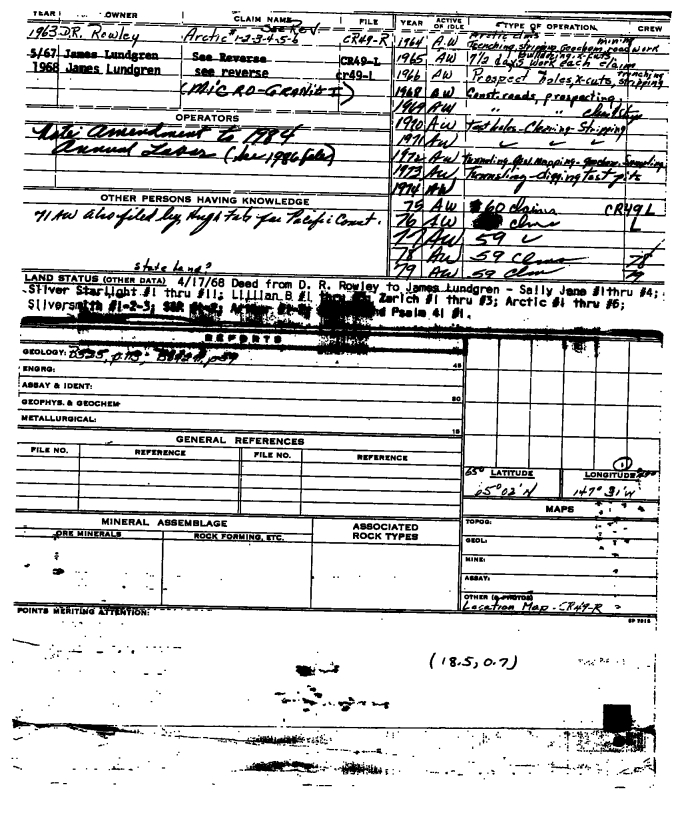 YEAR OWNER CLAIM NAME FILE
See Rev.
1963 D.R. Rowley Arctic #1-2-3-4-5-6 CR49-R
5/67 James Lundgren See Reverse CR49-L
1968 James Lundgren see reverse cr49-L
(MICRO-GRANITE)
OPERATORS
Note Amendment to 1984
Annual Labor (see 1986 file)
OTHER PERSONS HAVING KNOWLEDGE
71 AW also filed by Hugh Fate for Pacific Const.
YEAR ACTIVE OR IDLE TYPE OF OPERATION CREW
Arctic clms mining
1964 A-W Trenching, stripping, Geochem, road work
1965 AW 7½ days work each claim
1966 AW Prospect holes, x-cuts, trenching stripping
1968 AW Const. roads, prospecting,
1969 AW " "
1970 AW Test holes - Clearing - Stripping
1971 AW ✓ ✓ ✓
1972 AW Tunneling, Geol. Mapping - geochem. Sampling
1973 AW Tunneling - digging test pits
1974 AW
75 AW 60 claims CR49L
76 AW clms L
77 AW 59 ✓
78 AW 59 Clms 78
79 AW 59 Clm 79
State land?
LAND STATUS (OTHER DATA) 4/17/68 Deed from D. R. Rowley to James Lundgren - Sally Jane #1 thru #4;
Silver Starlight #1 thru #11; Lillian B #1 thru Zarich #1 thru #3; Arctic #1 thru #6;
Silversmith #1-2-3; and Psalm 41 #1.
REPORTS
GEOLOGY: B525, p.113;
ENGRG:
ASSAY & IDENT:
GEOPHYS. & GEOCHEM
METALLURGICAL:
GENERAL REFERENCES
FILE NO. REFERENCE FILE NO. REFERENCE
65° LATITUDE LONGITUDE
65° 02' N 147° 31' W
MINERAL ASSEMBLAGE ASSOCIATED ROCK TYPES
ORE MINERALS ROCK FORMING, ETC.
MAPS
TOPOG:
GEOL:
MINE:
ASSAY:
OTHER (& PHOTOS)
Location Map - CR49-R
POINTS MERITING ATTENTION:
(18.5, 0.7)